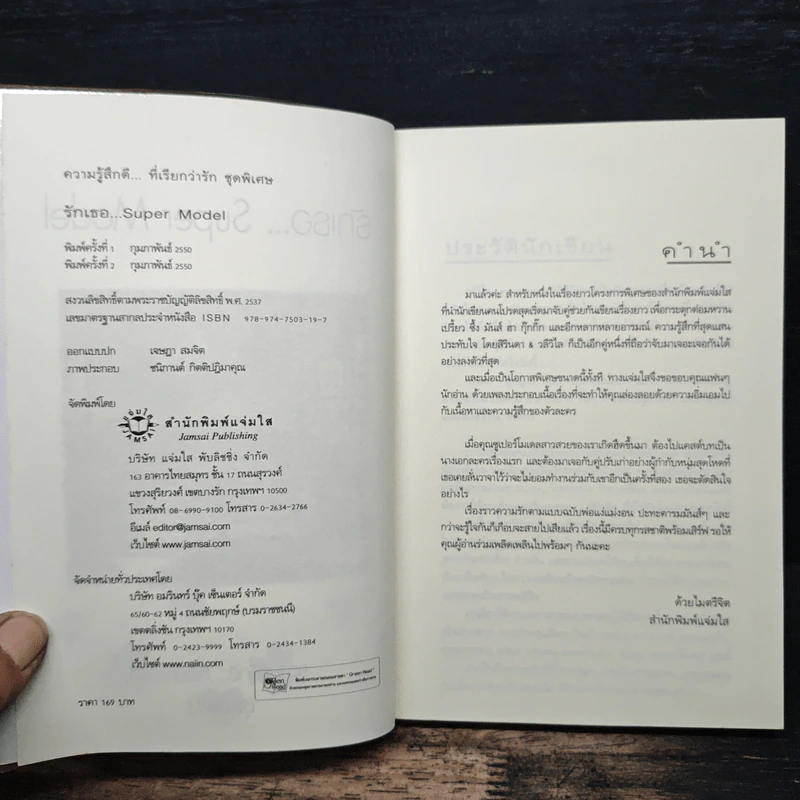 ความรู้สึกดี... ที่เรียกว่ารัก ชุดพิเศษ
รักเธอ...Super Model
พิมพ์ครั้งที่ 1 กุมภาพันธ์ 2550
พิมพ์ครั้งที่ 2 กุมภาพันธ์ 2550
สงวนลิขสิทธิ์ตามพระราชบัญญัติลิขสิทธิ์ พ.ศ. 2537
เลขมาตรฐานสากลประจำหนังสือ ISBN 978-974-7503-19-7
ออกแบบปก เจษฎา สมจิต
ภาพประกอบ ชนิกานต์ กิตติปฏิมาคุณ
จัดพิมพ์โดย
แจ่มใส
JAMSAI
สำนักพิมพ์แจ่มใส
Jamsai Publishing
บริษัท แจ่มใส พับลิชชิ่ง จำกัด
163 อาคารไทยสมุทร ชั้น 17 ถนนสุรวงศ์
แขวงสุริยวงศ์ เขตบางรัก กรุงเทพฯ 10500
โทรศัพท์ 08-6990-9100 โทรสาร 0-2634-2766
อีเมล์ editor@jamsai.com
เว็บไซต์ www.jamsai.com
จัดจำหน่ายทั่วประเทศโดย
บริษัท อมรินทร์ บุ๊ค เซ็นเตอร์ จำกัด
65/60-62 หมู่ 4 ถนนชัยพฤกษ์ (บรมราชชนนี)
เขตตลิ่งชัน กรุงเทพฯ 10170
โทรศัพท์ 0-2423-9999 โทรสาร 0-2434-1384
เว็บไซต์ www.naiin.com
Green Read
ราคา 169 บาท
คำนำ
มาแล้วค่ะ สำหรับหนึ่งในเรื่องยาวโครงการพิเศษของสำนักพิมพ์แจ่มใส
ที่นำนักเขียนคนโปรดสุดเริ่ดมาจับคู่ช่วยกันเขียนเรื่องยาว เพื่อกระตุกต่อมหวาน
เปรี้ยว ซึ้ง มันส์ ฮา กุ๊กกิ๊ก และอีกหลากหลายอารมณ์ ความรู้สึกที่สุดแสน
ประทับใจ โดยสิรินดา & วลีวิไล ก็เป็นอีกคู่หนึ่งที่ถือว่าจับมาเจอะเจอกันได้
อย่างลงตัวที่สุด
และเมื่อเป็นโอกาสพิเศษขนาดนี้ทั้งที ทางแจ่มใสจึงขอขอบคุณแฟนๆ
นักอ่าน ด้วยเพลงประกอบเนื้อเรื่องที่จะทำให้คุณล่องลอยด้วยความอิ่มเอมไป
กับเนื้อหาและความรู้สึกของตัวละคร
เมื่อคุณซูเปอร์โมเดลสาวสวยของเราเกิดฮึดขึ้นมา ต้องไปแคสต์บทเป็น
นางเอกละครเรื่องแรก และต้องมาเจอกับคู่ปรับเก่าอย่างผู้กำกับหนุ่มสุดโหดที่
เธอเคยลั่นวาจาไว้ว่าจะไม่ยอมทำงานร่วมกับเขาอีกเป็นครั้งที่สอง เธอจะตัดสินใจ
อย่างไร
เรื่องราวความรักตามแบบฉบับพ่อแง่แม่งอน ปะทะคารมมันส์ๆ และ
กว่าจะรู้ใจกันก็เกือบจะสายไปเสียแล้ว เรื่องนี้มีครบทุกรสชาติพร้อมเสิร์ฟ รอให้
คุณผู้อ่านร่วมเพลิดเพลินไปพร้อมๆ กันนะคะ
ด้วยไมตรีจิต
สำนักพิมพ์แจ่มใส